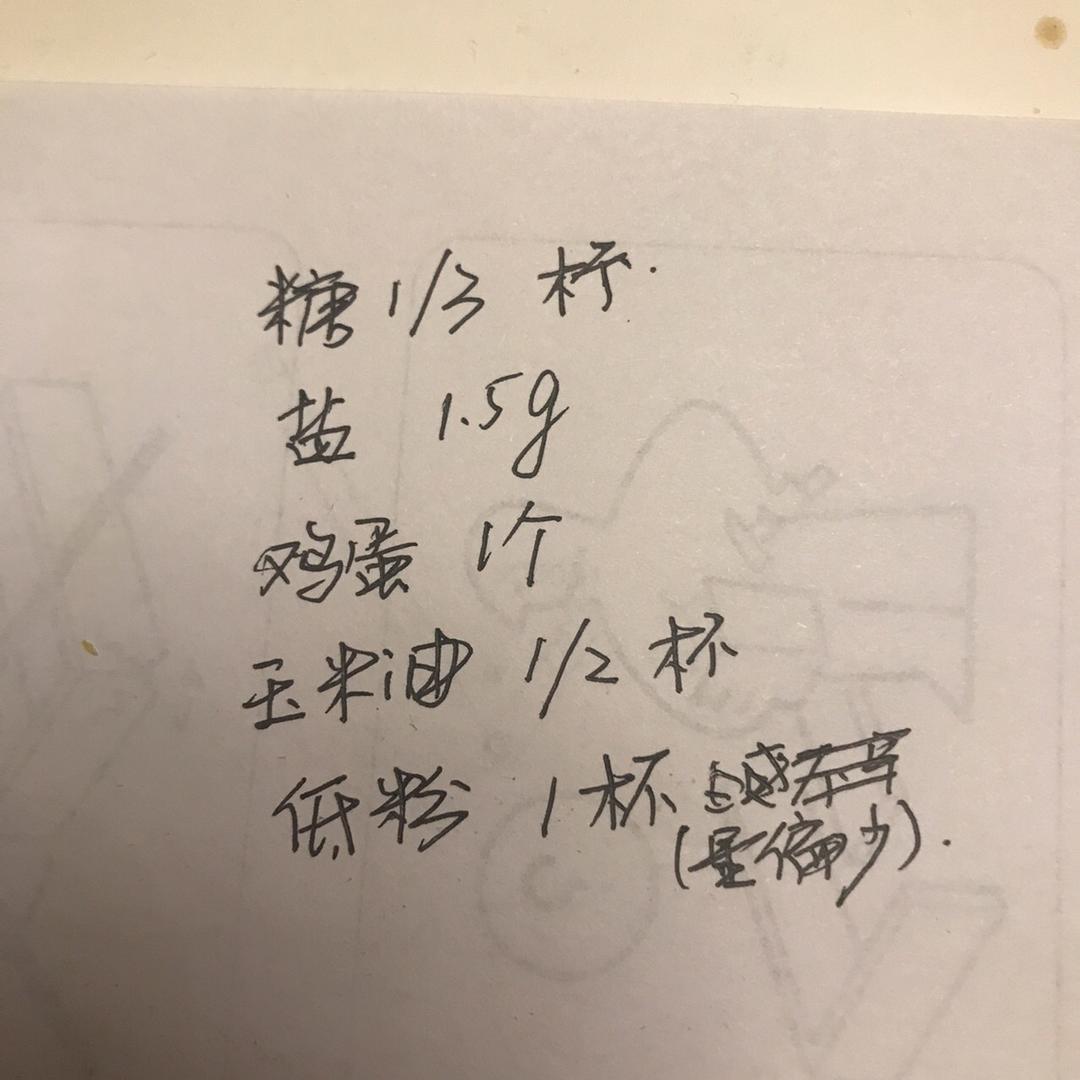 糖 1/3 杯.
盐 1.5g
鸡蛋 1个
玉米油 1/2 杯
低粉 1 杯
(量偏少).